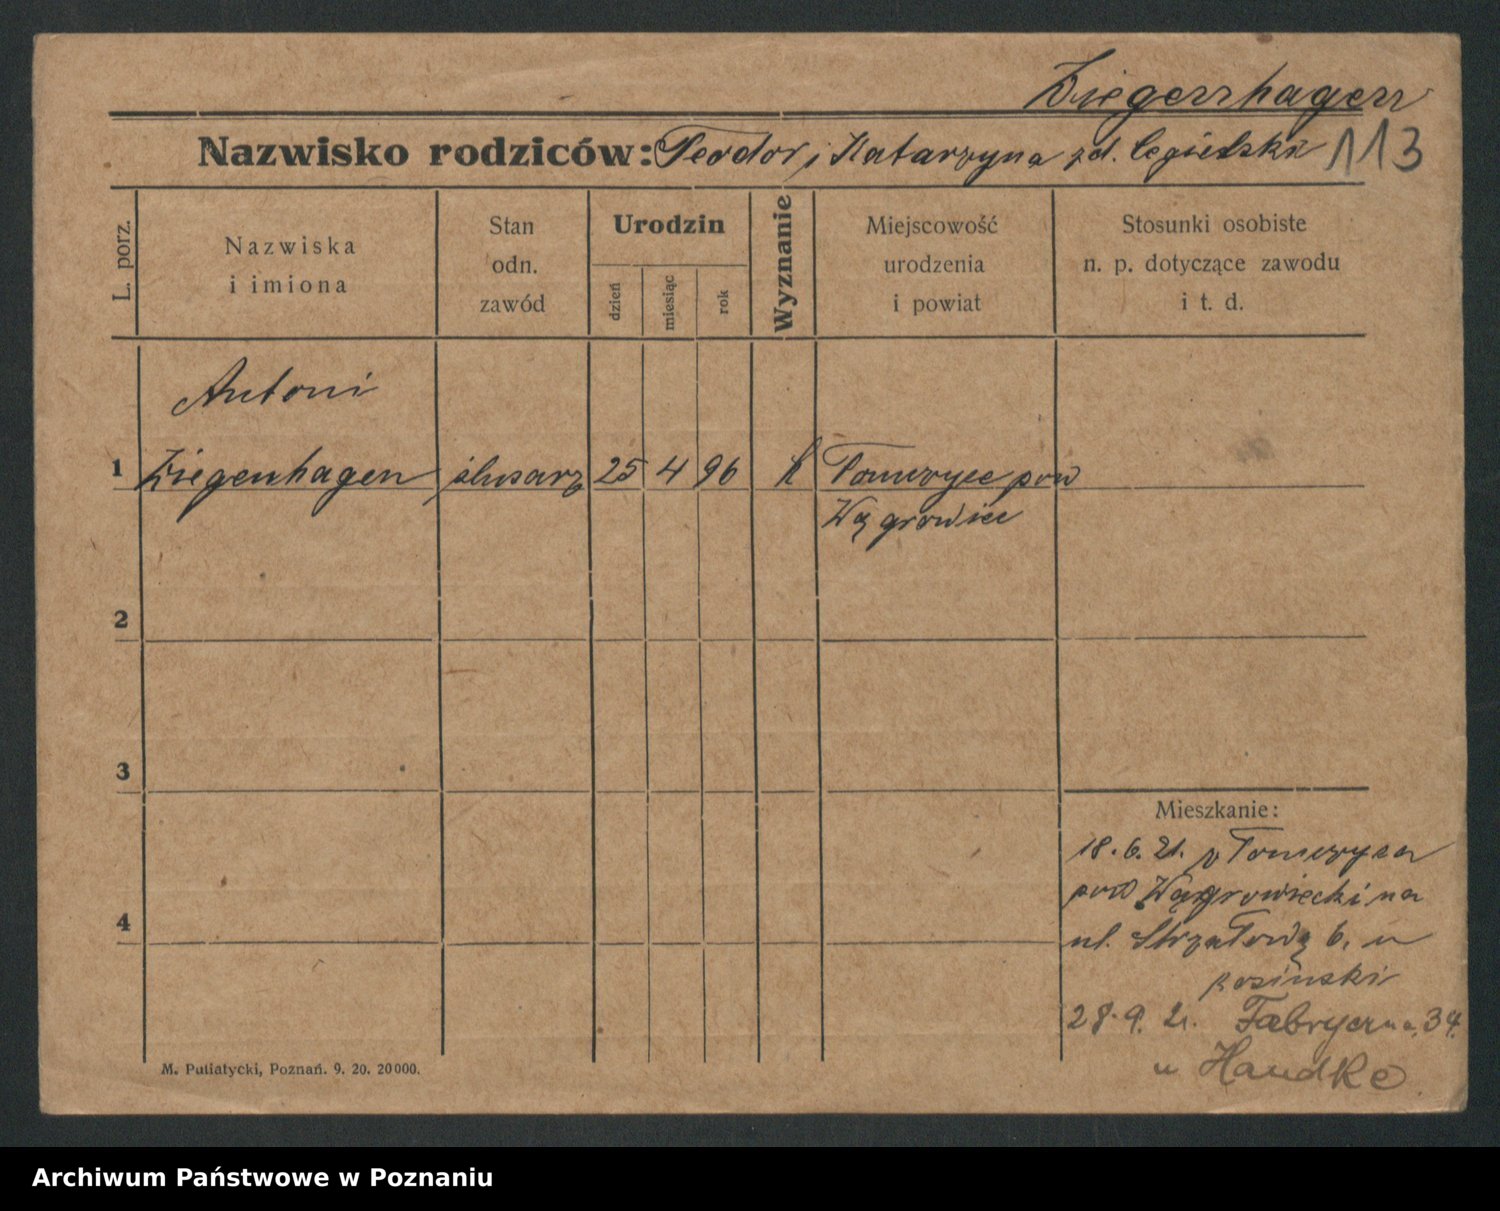 Ziegenhagen
Nazwisko rodziców: Teodor i Katarzyna zd. Cegielska 113
L. porz.
Nazwiska
i imiona
Stan
odn.
zawód
Urodzin
dzień
miesiąc
rok
Wyznanie
Miejscowość
urodzenia
i powiat
Stosunki osobiste
n. p. dotyczące zawodu
i t. d.
Antoni
1 Ziegenhagen ślusarz 25 4 96 k pow
Wągrowiec
2
3
4
Mieszkanie:
18.6.21. z
pow Wągrowiecki na
ul. Strzałową 6, u
Rosinski
28.9.21. Fabryczna 34.
u Handke
M. Putiatycki, Poznań. 9. 20. 20000.
Archiwum Państwowe w Poznaniu